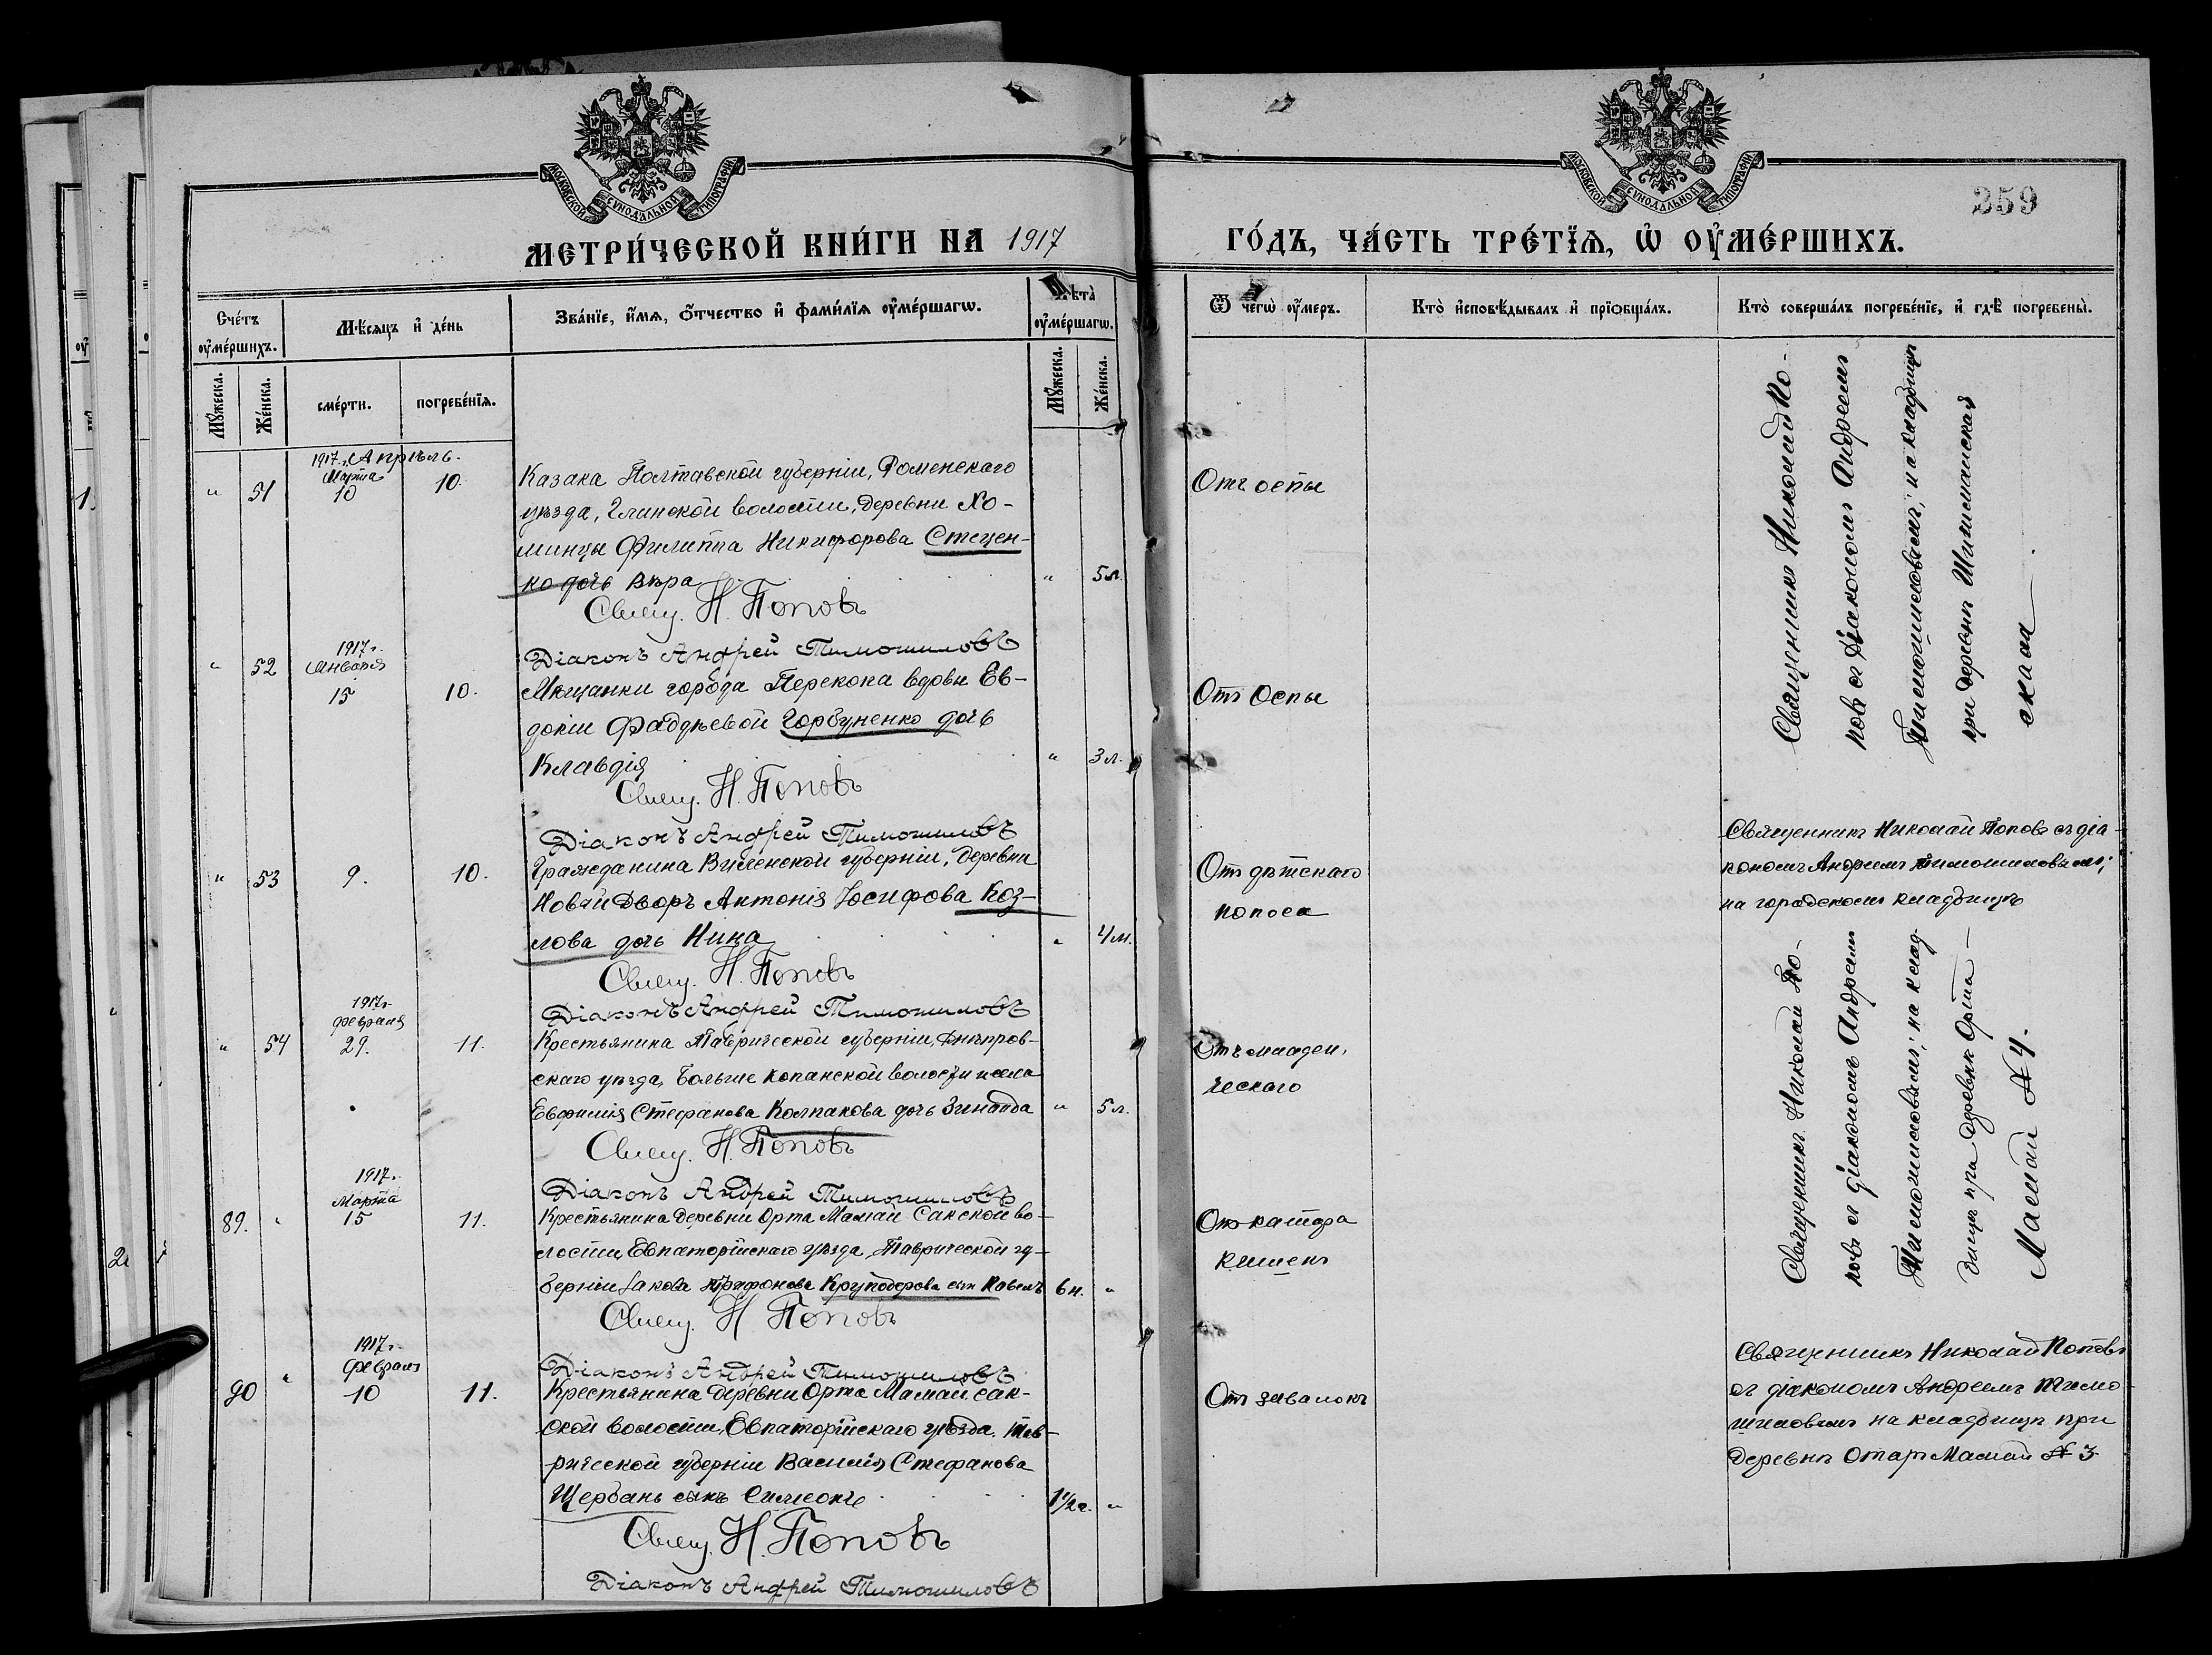 МОСКОВСКОЙ СѴНОДАЛЬНОЙ ТИПОГРАФІИ
МОСКОВСКОЙ СѴНОДАЛЬНОЙ ТИПОГРАФІИ
359
МЕТРИ́ЧЕСКОЙ КНИ́ГИ НА 1917
ГО́ДЪ, ЧА́СТЬ ТРЕ́ТІѦ, Ѡ҆ ОУ҆МЕ́РШИХЪ.
Сче́тъ оу҆ме́ршихъ.
Мѣ́сѧцъ и҆ де́нь
Зва́нїе, и҆́мѧ, ѻ҆́тчество и҆ фами́лїѧ оу҆ме́ршагѡ.
Лѣта̀ оу҆ме́ршагѡ.
Ѿ чегѡ̀ оу҆́меръ.
Кто̀ и҆сповѣ́дывалъ и҆ прїѡбща́лъ.
Кто̀ соверша́лъ погребе́нїе, и҆ гдѣ̀ погребены̀.
Мꙋ́жеска.
Же́нска.
сме́рти.
погребе́нїѧ.
Мꙋ́жеска.
Же́нска.
1917 г. Апрѣль.
Марта
" 51 10 10.
Казака Полтавской губерніи, Роменскаго
уѣзда, Глинской волости, деревни Хо-
минцы Филиппа Никифорова Стецен-
ко дочь Вѣра " 5 л.
Свящ. Н. Поповъ
Діаконъ Андрей Тимошиловъ
Отъ оспы
Священникъ Николай По-
повъ съ діакономъ Андреемъ
Тимошиловымъ; на кладбищѣ
при деревнѣ
скала
1917 г.
Января
" 52 15 10.
Мѣщанки города Перекопа вдовы Ев-
докіи Фаддѣевой Горбуненко дочь
Клавдія " 3 л.
Свящ. Н. Поповъ
Діаконъ Андрей Тимошиловъ
Отъ Оспы
" 53 9. 10.
Гражданина Виленской губерніи, деревни
Новый Дворъ Антонія Іосифова Коз-
лова дочь Нина " 4 м.
Свящ. Н. Поповъ
Діаконъ Андрей Тимошиловъ
Отъ дѣтскаго
поноса
Священникъ Николай Поповъ съ діа-
кономъ Андреемъ Тимошиловымъ;
на городскомъ кладбищѣ
1917 г.
Февраля
" 54 29. 11.
Крестьянина Таврической губерніи, Днѣпров-
скаго уѣзда, Больше Копанской волости и села
Евфимія Стефанова Колпакова дочь Зинаида " 5 л.
Свящ. Н. Поповъ
Діаконъ Андрей Тимошиловъ
Отъ младен.
ческаго
Священникъ Николай По-
повъ съ діакономъ Андреемъ
Тимошиловымъ; на клад-
бищѣ при деревнѣ Орта-
Мамай № 4.
1917 г.
Марта
89. " 15 11.
Крестьянина деревни Орта Мамай Сакской во-
лости, Евпаторійскаго уѣзда, Таврической гу-
берніи Іакова Трифонова Круподерова сын Павелъ 6 н. "
Свящ. Н. Поповъ
Діаконъ Андрей Тимошиловъ
Отъ катара
кишекъ
1917 г.
Февраля
90 " 10 11.
Крестьянина деревни Орта Мамай Сак-
ской волости, Евпаторійскаго уѣзда, Тав-
рической губерніи Василія Стефанова
Щербань сынъ Симеонъ 1 1/2 г. "
Свящ. Н. Поповъ
Діаконъ Андрей Тимошиловъ
Отъ завалокъ
Священникъ Николай Поповъ
съ діакономъ Андреемъ Тимо-
шиловымъ на кладбищѣ при
деревнѣ Отар Мамай № 3